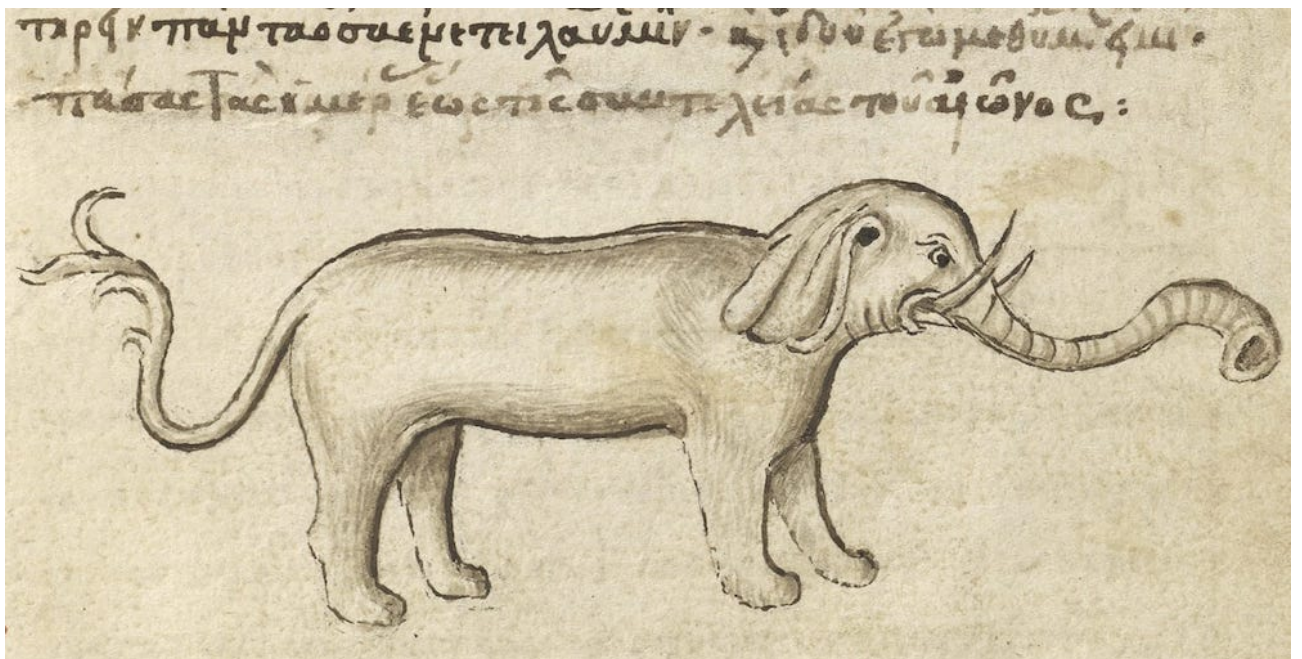 τηρεῖν πάντα ὅσα ἐνετειλάμην· ἰδοὺ ἐγὼ μεθ' ὑμῶν εἰμι·
πάσας τὰς ἡμέρ ἕως τῆς συντελείας τοῦ αἰῶνος: